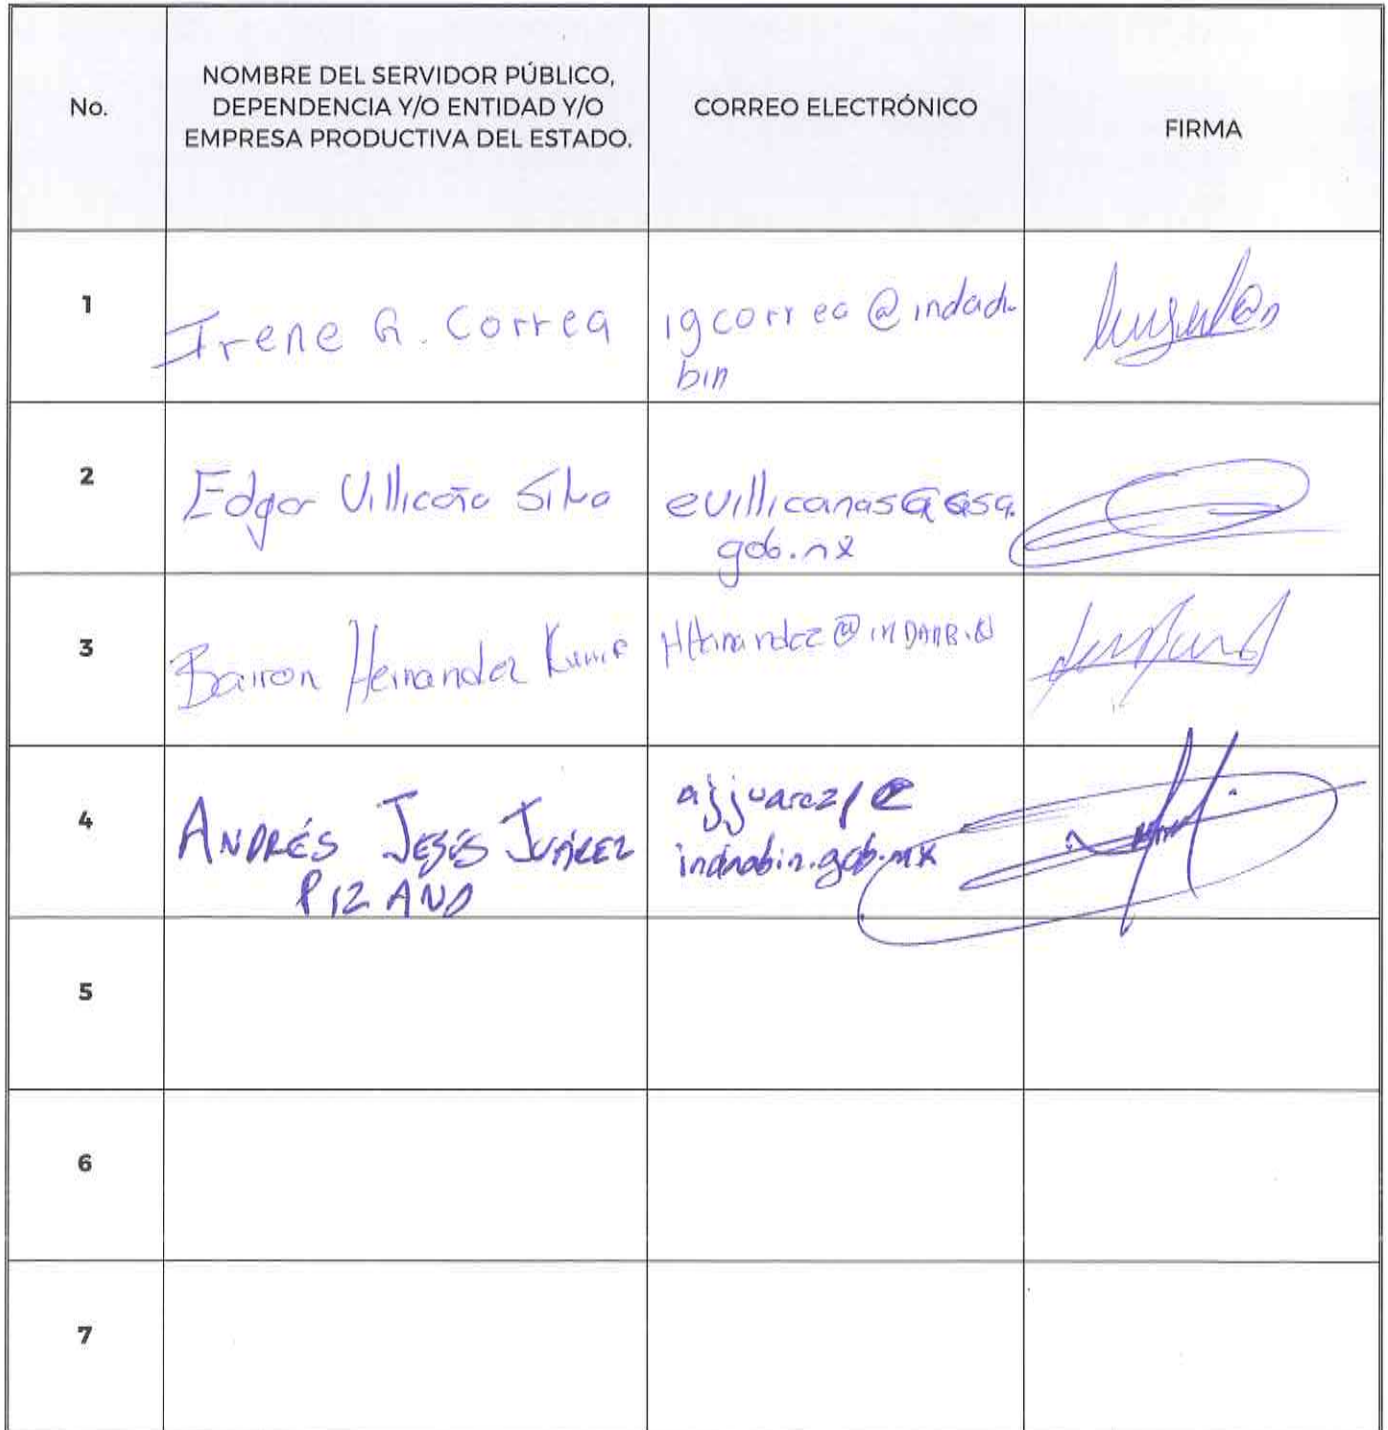 No.
NOMBRE DEL SERVIDOR PÚBLICO,
DEPENDENCIA Y/O ENTIDAD Y/O
EMPRESA PRODUCTIVA DEL ESTADO.
CORREO ELECTRÓNICO
FIRMA
1
Irene G. Correa
igcorrea@indad-
bin
2
Edgar Villicaña Silva
evillicanas@asa.
gob.mx
3
Bairon Hernandez
4
ANDRÉS JESÚS JUÁREZ
PIZANO
ajjuarez
indaabin.gob.mx
5
6
7